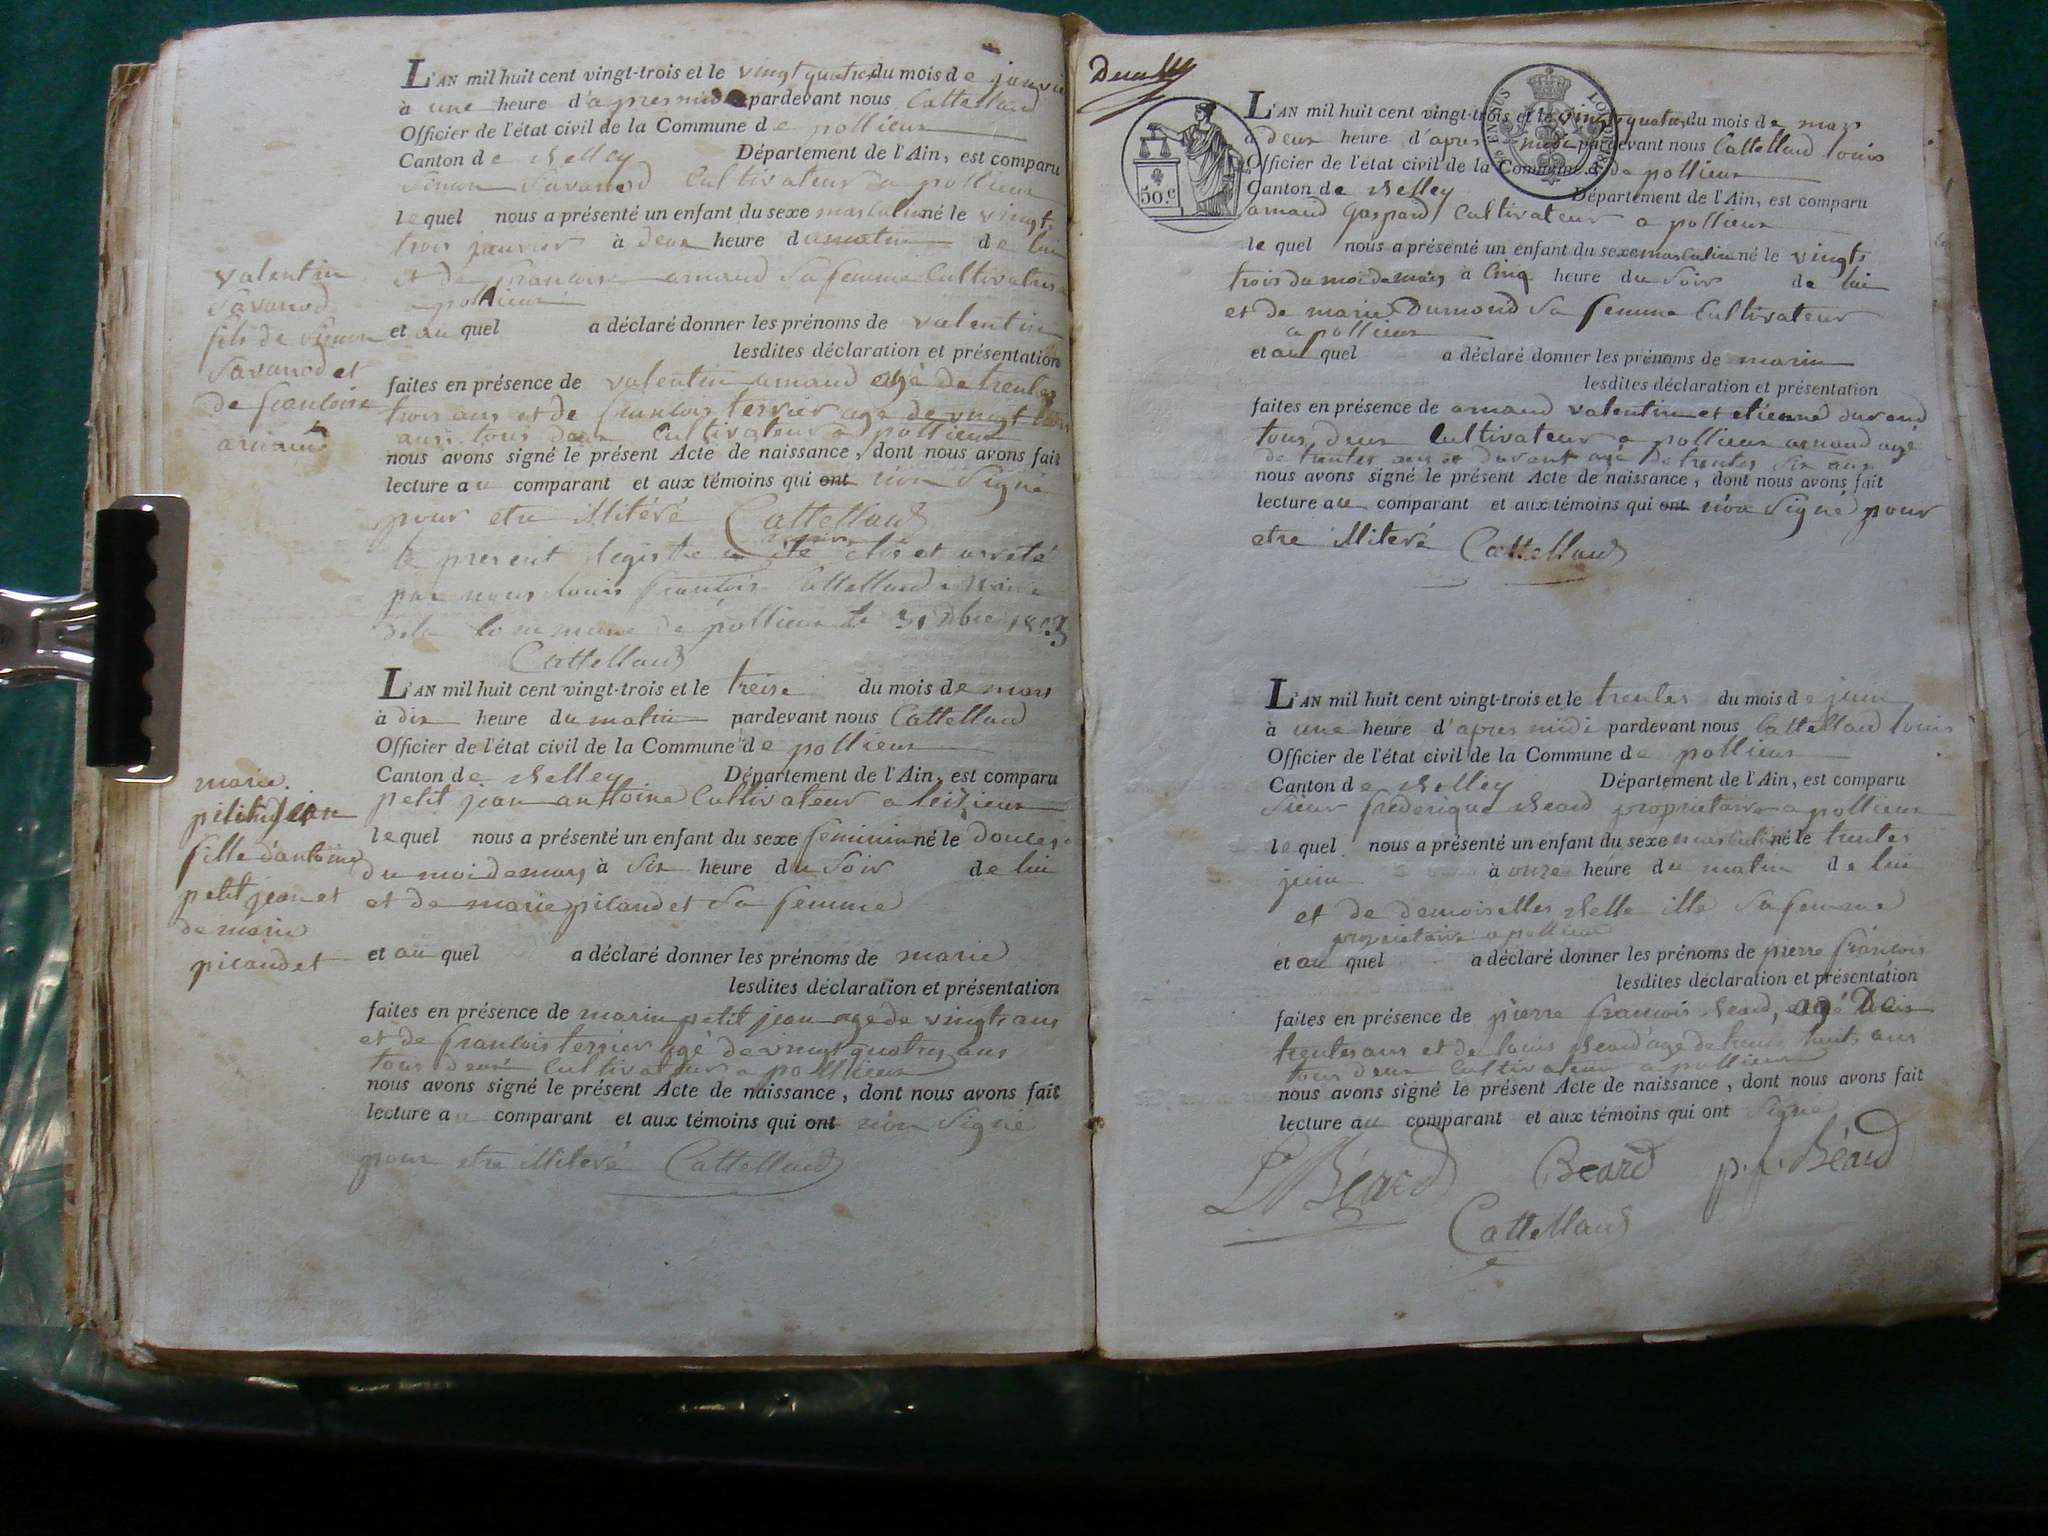 L'AN mil huit cent vingt-trois et le vingt quatres du mois de janvie
à une heure d'apres midi pardevant nous Cattelland
Officier de l'état civil de la Commune de pollieux
Canton de Belley Département de l'Ain, est comparu
Simon Savarod Cultivateur a pollieux
lequel nous a présenté un enfant du sexe masculin né le vingts
trois janvier à deux heure du matin de lui
et de francoise arnaud Sa femme Cultivatrise
a pollieux
et au quel a déclaré donner les prénoms de valentin
lesdites déclaration et présentation
faites en présence de valentin arnaud agé de trentes
trois ans et de francois terrier agé de vingt trois
ans tous deux Cultivateur a pollieux
nous avons signé le présent Acte de naissance, dont nous avons fait
lecture au comparant et aux témoins qui ont non Signé
pour etre illitéré Cattelland
le present Registre a été clos et arreté
par nous louis francois Cattelland Maire
de la Commune de pollieux le 31 Xbre 1823
Cattelland
valentin
Savarod
fils de Simon
Savarod et
de francoise
arnaud
L'AN mil huit cent vingt-trois et le treise du mois de mars
à dix heure du matin pardevant nous Cattelland
Officier de l'état civil de la Commune de pollieux
Canton de Belley Département de l'Ain, est comparu
petit jean anttoine Cultivateur a leizieux
lequel nous a présenté un enfant du sexe feminin né le douzes
du moi de mars à Six heure du Soir de lui
et de marie picaudet Sa femme
et au quel a déclaré donner les prénoms de marie
lesdites déclaration et présentation
faites en présence de marin petit jean age de vingts ans
et de francois terrier agé de vingt quatres ans
tous deux Cultivateur a pollieux
nous avons signé le présent Acte de naissance, dont nous avons fait
lecture au comparant et aux témoins qui ont non Signé
pour etre illitéré Cattelland
marie
petit jean
fille d'antoine
petit jean et
de marie
picaudet
50.c
L'AN mil huit cent vingt-trois et le vingt quatres du mois de mars
à deux heure d'apres midi pardevant nous Cattelland louis
Officier de l'état civil de la Commune de pollieux
Canton de Belley Département de l'Ain, est comparu
arnaud Gaspard Cultivateur a pollieux
lequel nous a présenté un enfant du sexe masculin né le vingts
trois du moi de mars à Cinq heure du Soir de lui
et de marie Dumond Sa femme Cultivateur
a pollieux
et au quel a déclaré donner les prénoms de marin
lesdites déclaration et présentation
faites en présence de arnaud valentin et etienne durand
tous deux Cultivateur a pollieux arnaud agé
de trentes ans et durant agé de trentes Six ans
nous avons signé le présent Acte de naissance, dont nous avons fait
lecture au comparant et aux témoins qui ont non Signé pour
etre illiteré Cattelland
L'AN mil huit cent vingt-trois et le trentes du mois de juin
à une heure d'apres midi pardevant nous Cattelland louis
Officier de l'état civil de la Commune de pollieux
Canton de Belley Département de l'Ain, est comparu
Sieur frederique Beard proprietaire a pollieux
lequel nous a présenté un enfant du sexe masculin né le trentes
juin à onze heure du matin de lui
et de demoiselles Sa femme
proprietaire a pollieux
et au quel a déclaré donner les prénoms de pierre francois
lesdites déclaration et présentation
faites en présence de pierre francois Beard, agé De
trentes ans et de louis Beard agé de trente huit ans
tous deux Cultivateur a pollieux
nous avons signé le présent Acte de naissance, dont nous avons fait
lecture au comparant et aux témoins qui ont Signé
Béard Beard p. f. Béard
Cattelland